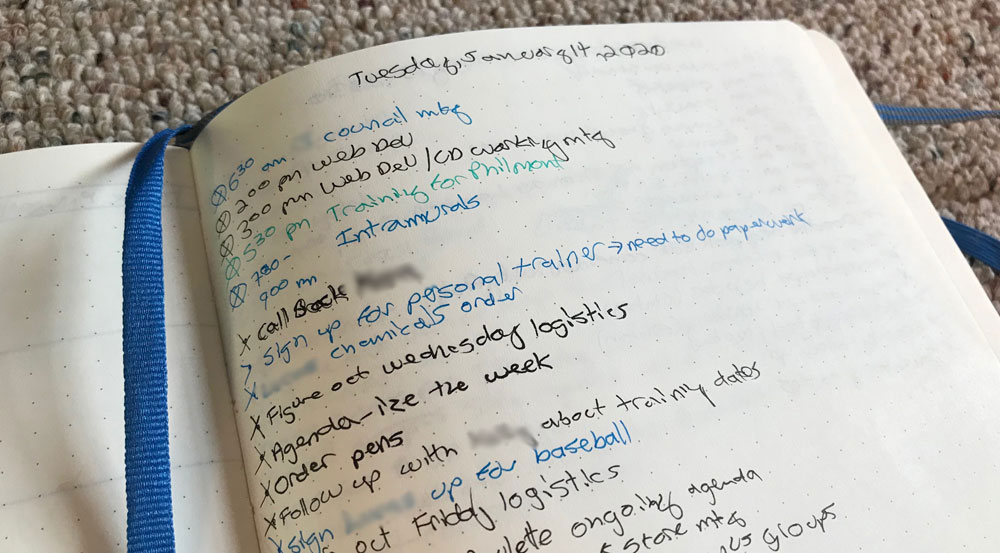 Tuesday, January 14, 2020
630 am council mtg
200 pm Web Dev
300 pm Web Dev / CD working mtg
530 pm Training for Philmont
730-
900 pm Intramurals
x Call Back
> Sign up for personal trainer → need to do paperwork
x chemicals order
x Figure oct wednesday logistics
x Agenda-ize tze week
x Order pens
x Follow up with about training dates
x Sign up for baseball
oct Friday logistics
ongoing agenda
store mtg
groups